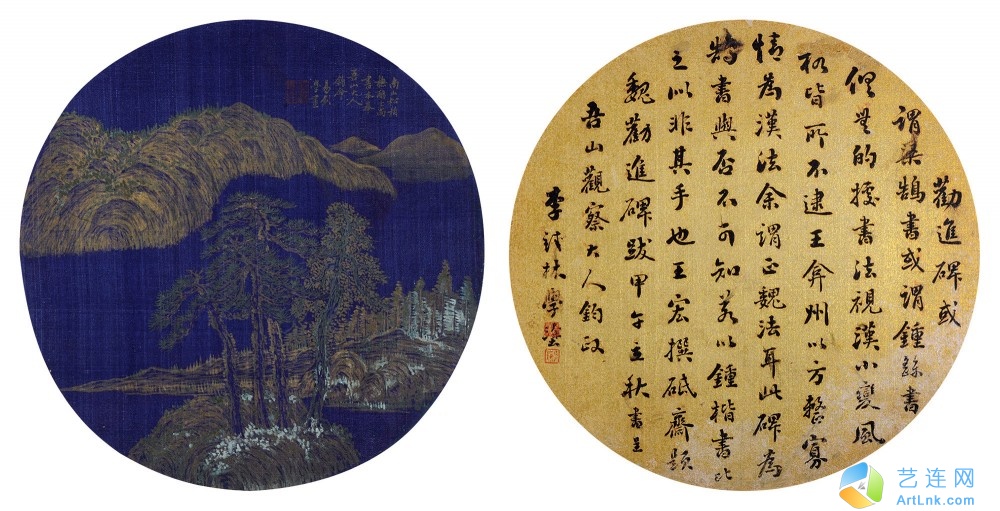 南山松柏
吾山大人
勸進碑或
謂梁鵠書或謂鍾繇書
但無的據書法視漢小變風
格皆所不逮王弇州以方整寡
情為漢法余謂正魏法耳此碑為
鵠書與否不可知若以鍾楷書比
之以非其手也王宏撰砥齋題
魏勸進碑跋甲午立秋書呈
吾山觀察大人鈞政
李林學
艺连网
ArtLnk.com